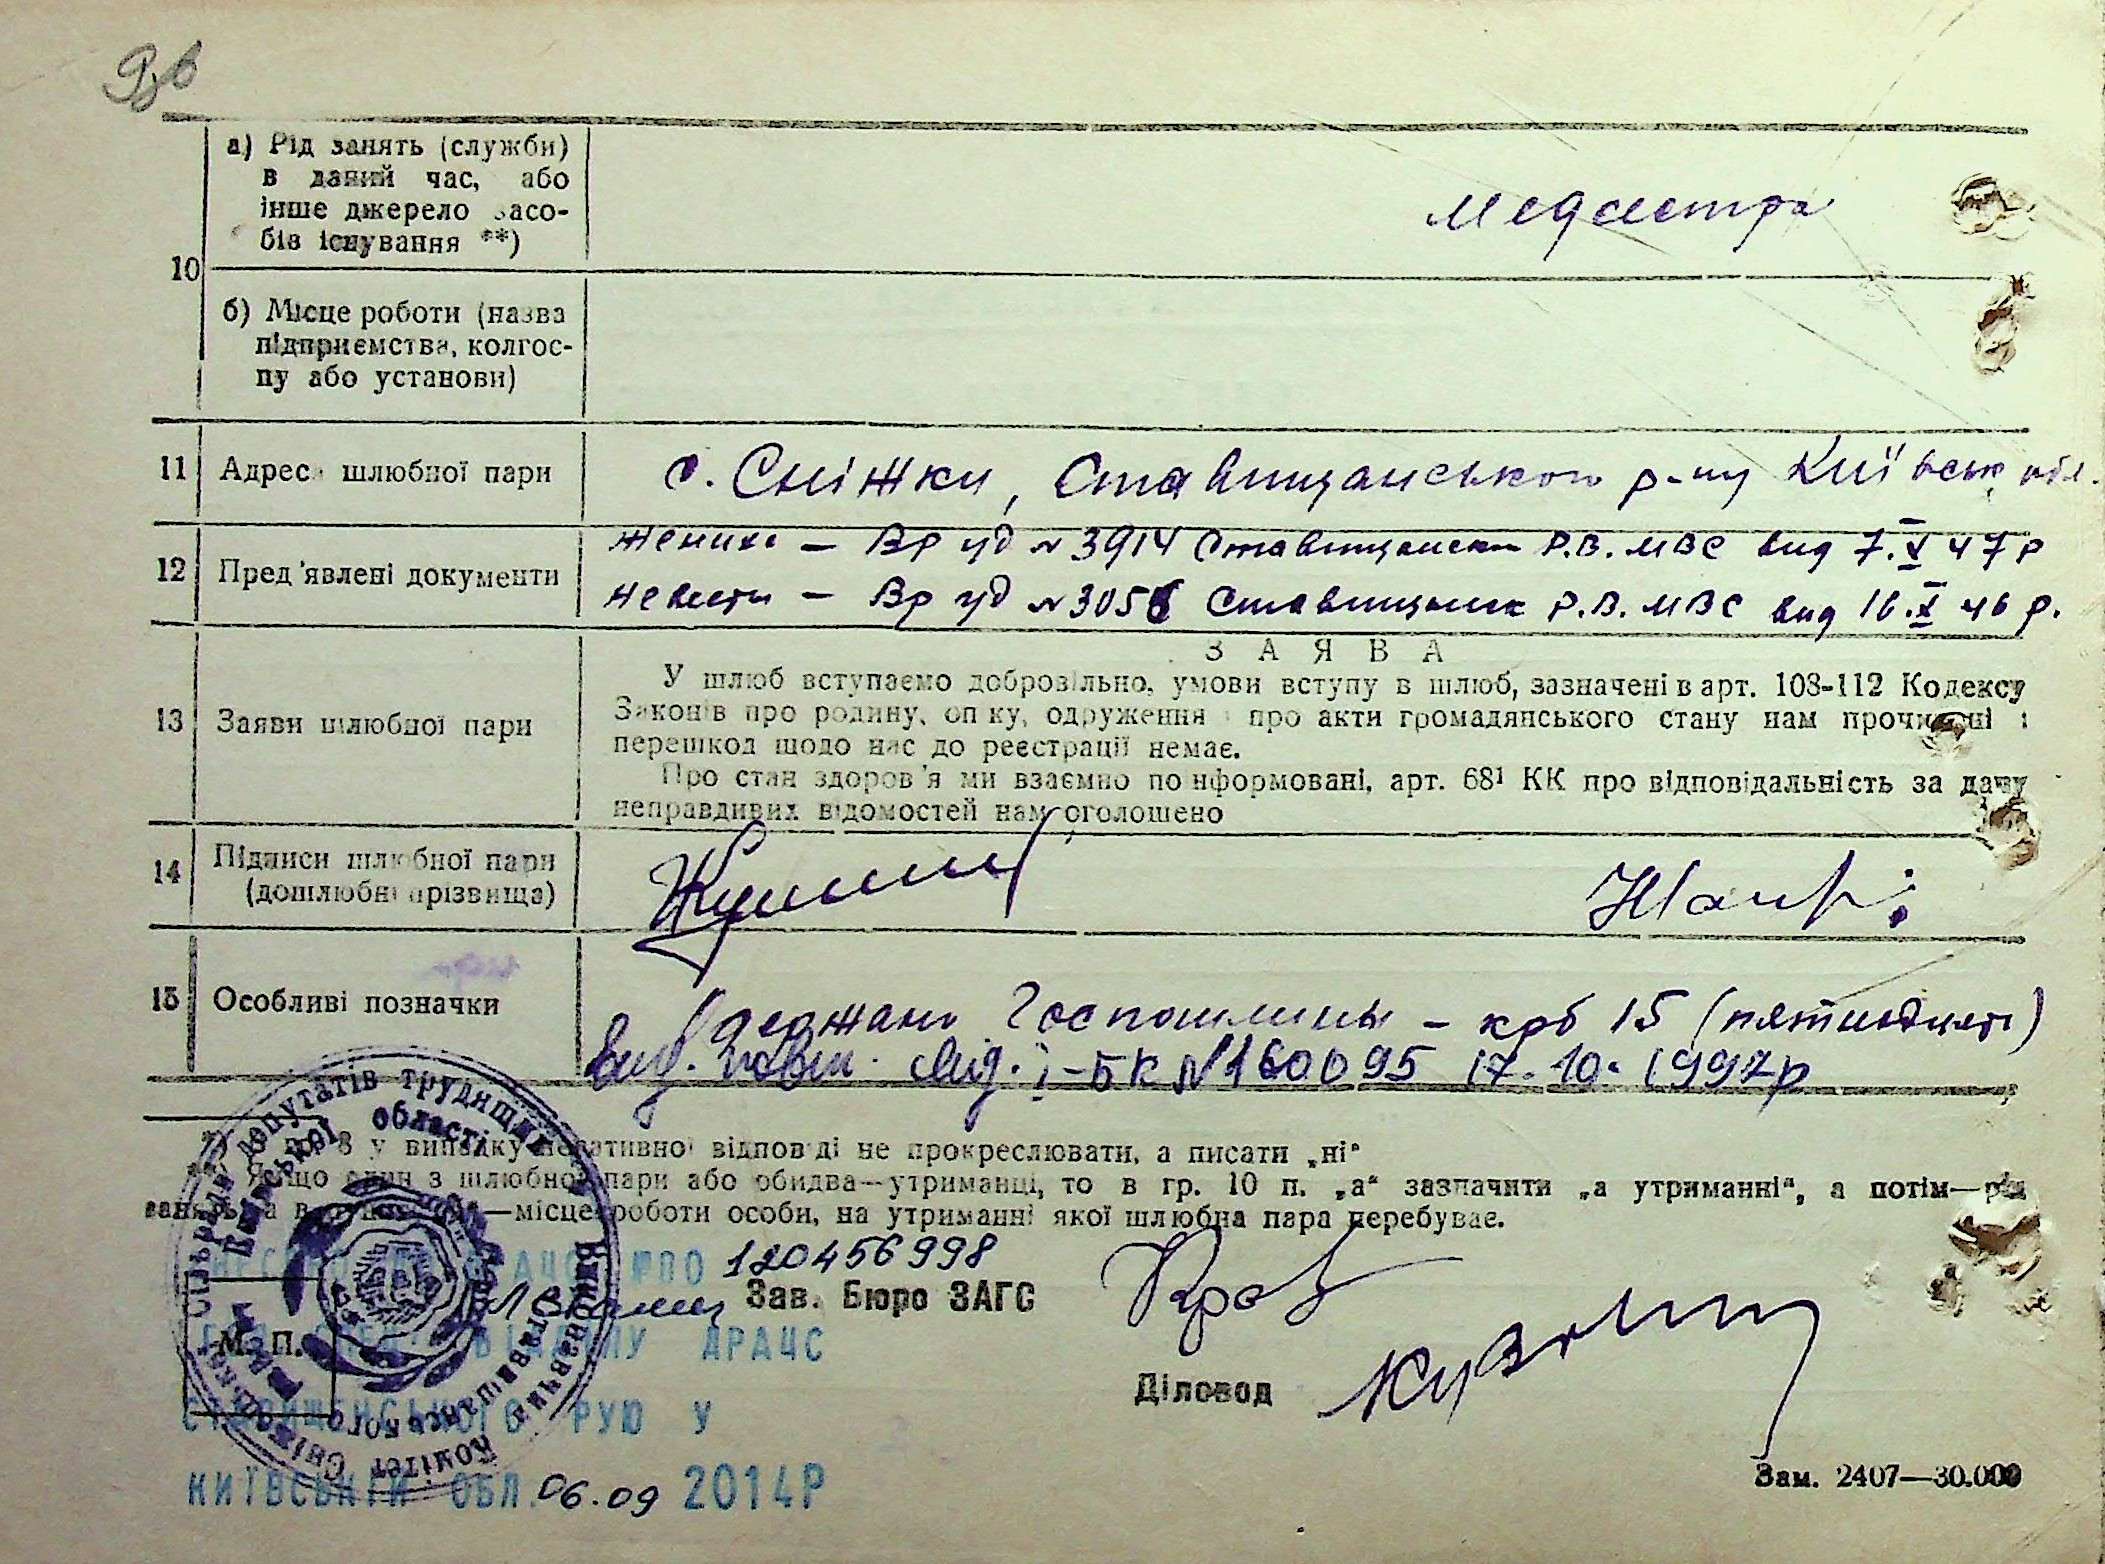 10
а) Рід занять (служби)
в даний час, або
інше джерело засо-
бів існування **)
медсестра
б) Місце роботи (назва
підприємства, колгос-
пу або установи)
11 Адреса шлюбної пари
с. Сніжки, Ставищанського р-ну Київськ обл.
12 Пред'явлені документи
жениха — Вр уд № 3914 Ставищанськ Р.В. МВС вид 7.X 47 р
невести — Вр уд № 3056 Ставищанськ Р.В. МВС вид 16.X 46 р.
13 Заяви шлюбної пари
ЗАЯВА
У шлюб вступаємо добровільно, умови вступу в шлюб, зазначені в арт. 108-112 Кодексу
Законів про родину, опіку, одруження і про акти громадянського стану нам прочитані і
перешкод щодо нас до реєстрації немає.
Про стан здоров'я ми взаємно поінформовані, арт. 68¹ КК про відповідальність за дачу
неправдивих відомостей нам оголошено
14 Підписи шлюбної пари
(дошлюбні прізвища)
15 Особливі позначки
Удержано Госпошлины — крб 15 (пятнадцать)
Вид. повт. свід. І-БК №160095 17.10.1997р
*) Гр. 8 у випадку негативної відповіді не прокреслювати, а писати „ні“
**) Якщо один з шлюбної пари або обидва—утриманці, то в гр. 10 п. „а“ зазначити „а утриманні“, а потім—рід
занять, а в —місце роботи особи, на утриманні якої шлюбна пара перебуває.
120456998
Зав. Бюро ЗАГС
М. П.
ВІДДІЛУ ДРАЦС
Діловод
СТАВИЩЕНСЬКОГО РУЮ У
КИЇВСЬКІЙ ОБЛ. 06.09 2014Р
Зам. 2407—30.000